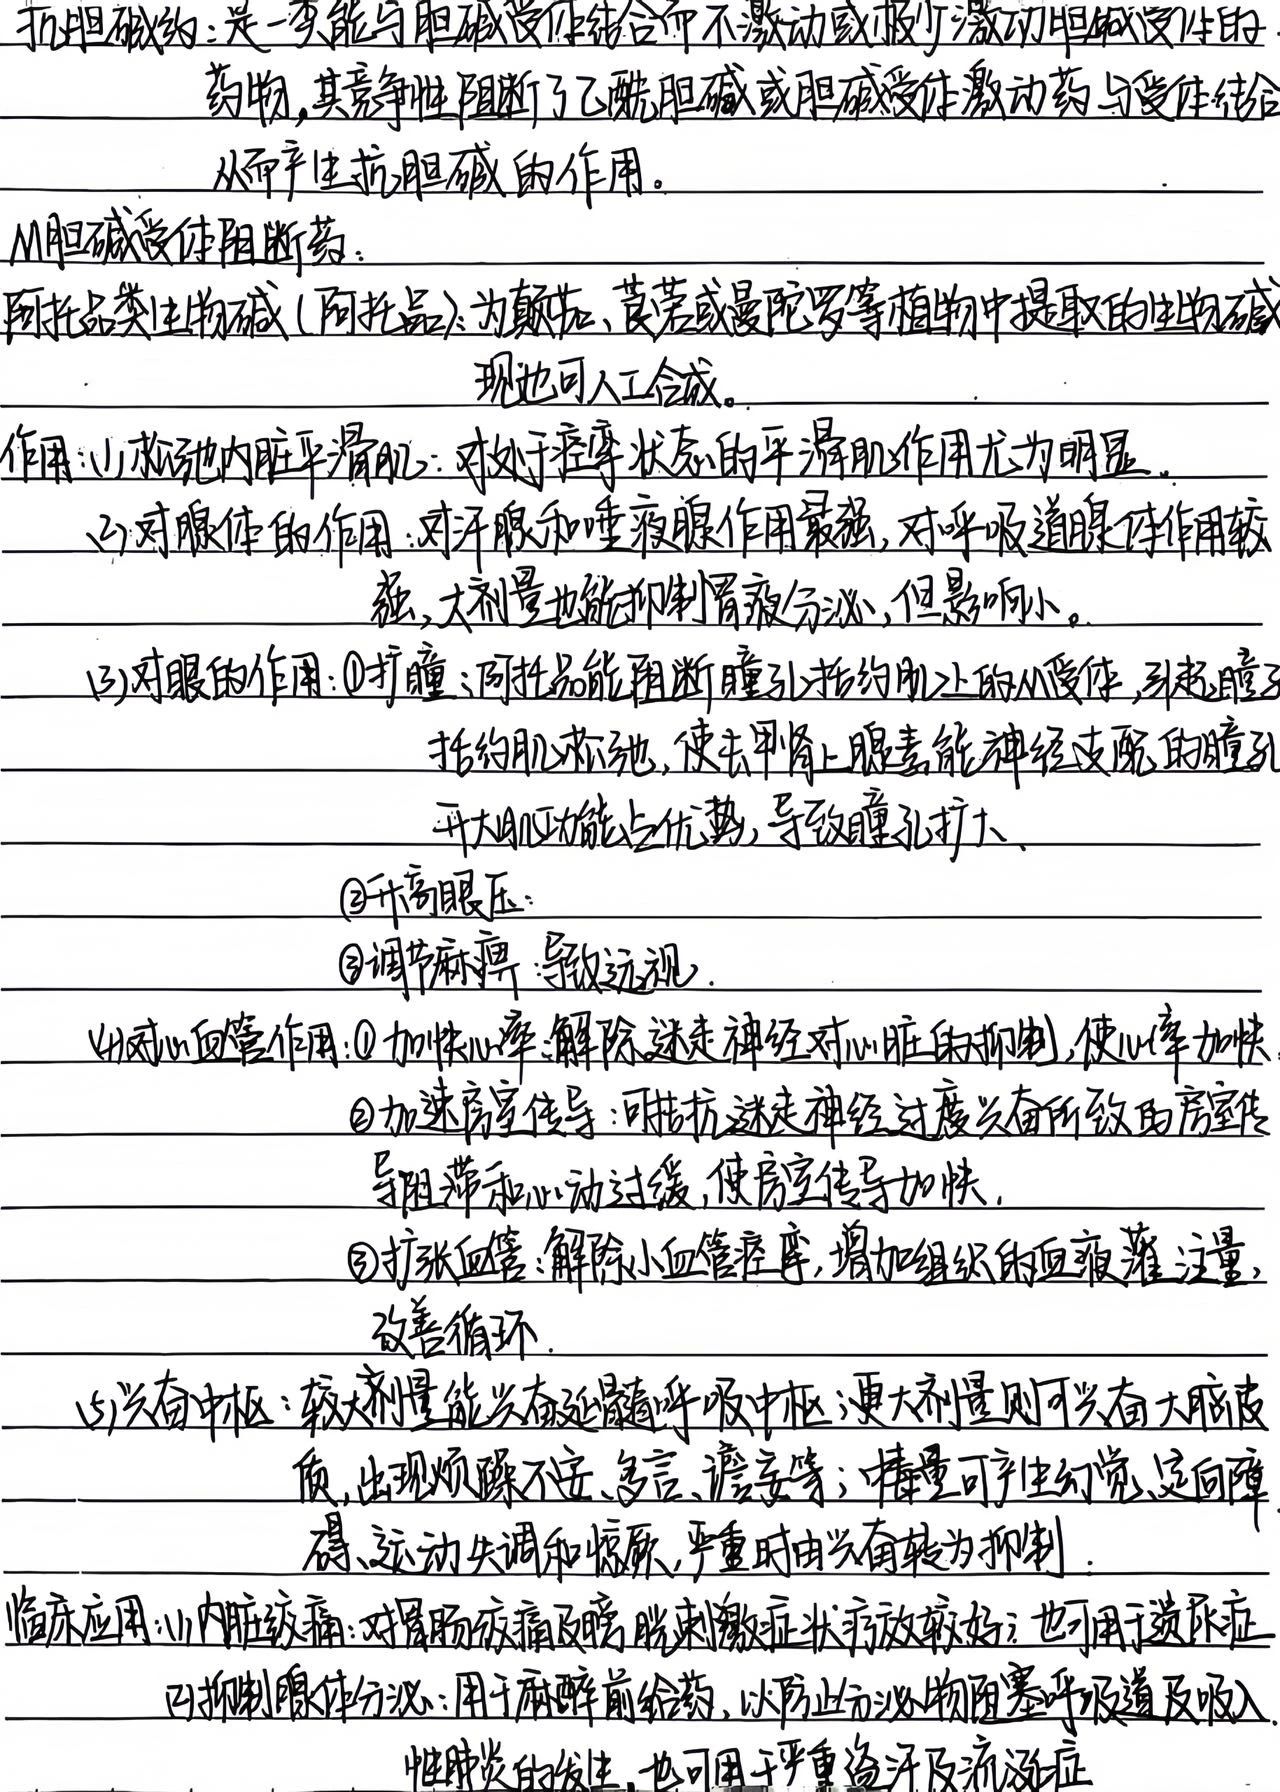 抗胆碱药：是一类能与胆碱受体结合而不激动或极少激动胆碱受体的
药物，其竞争性阻断了乙酰胆碱或胆碱受体激动药与受体结合
从而产生抗胆碱的作用。
M胆碱受体阻断药：
阿托品类生物碱（阿托品）：为颠茄、莨菪或曼陀罗等植物中提取的生物碱
现也可人工合成。
作用：(1)松弛内脏平滑肌：对处于痉挛状态的平滑肌作用尤为明显。
(2)对腺体的作用：对汗腺和唾液腺作用最强，对呼吸道腺体作用较
强，大剂量也能抑制胃液分泌，但影响小。
(3)对眼的作用：①扩瞳：阿托品能阻断瞳孔括约肌上的M受体，引起瞳孔
括约肌松弛，使去甲肾上腺素能神经支配的瞳孔
开大肌功能占优势，导致瞳孔扩大、
②升高眼压：
③调节麻痹：导致远视.
(4)对心血管作用：①加快心率：解除迷走神经对心脏的抑制，使心率加快.
②加速房室传导：可拮抗迷走神经过度兴奋所致的房室传
导阻滞和心动过缓，使房室传导加快.
③扩张血管：解除小血管痉挛，增加组织的血液灌注量，
改善循环.
(5)兴奋中枢：较大剂量能兴奋延髓呼吸中枢；更大剂量则可兴奋大脑皮
质，出现烦躁不安、多言、谵妄等；中毒量可产生幻觉、定向障
碍、运动失调和惊厥，严重时由兴奋转为抑制.
临床应用：(1)内脏绞痛：对胃肠绞痛及膀胱刺激症状疗效较好；也可用于遗尿症
(2)抑制腺体分泌：用于麻醉前给药，以防止分泌物阻塞呼吸道及吸入
性肺炎的发生，也可用于严重盗汗及流涎症